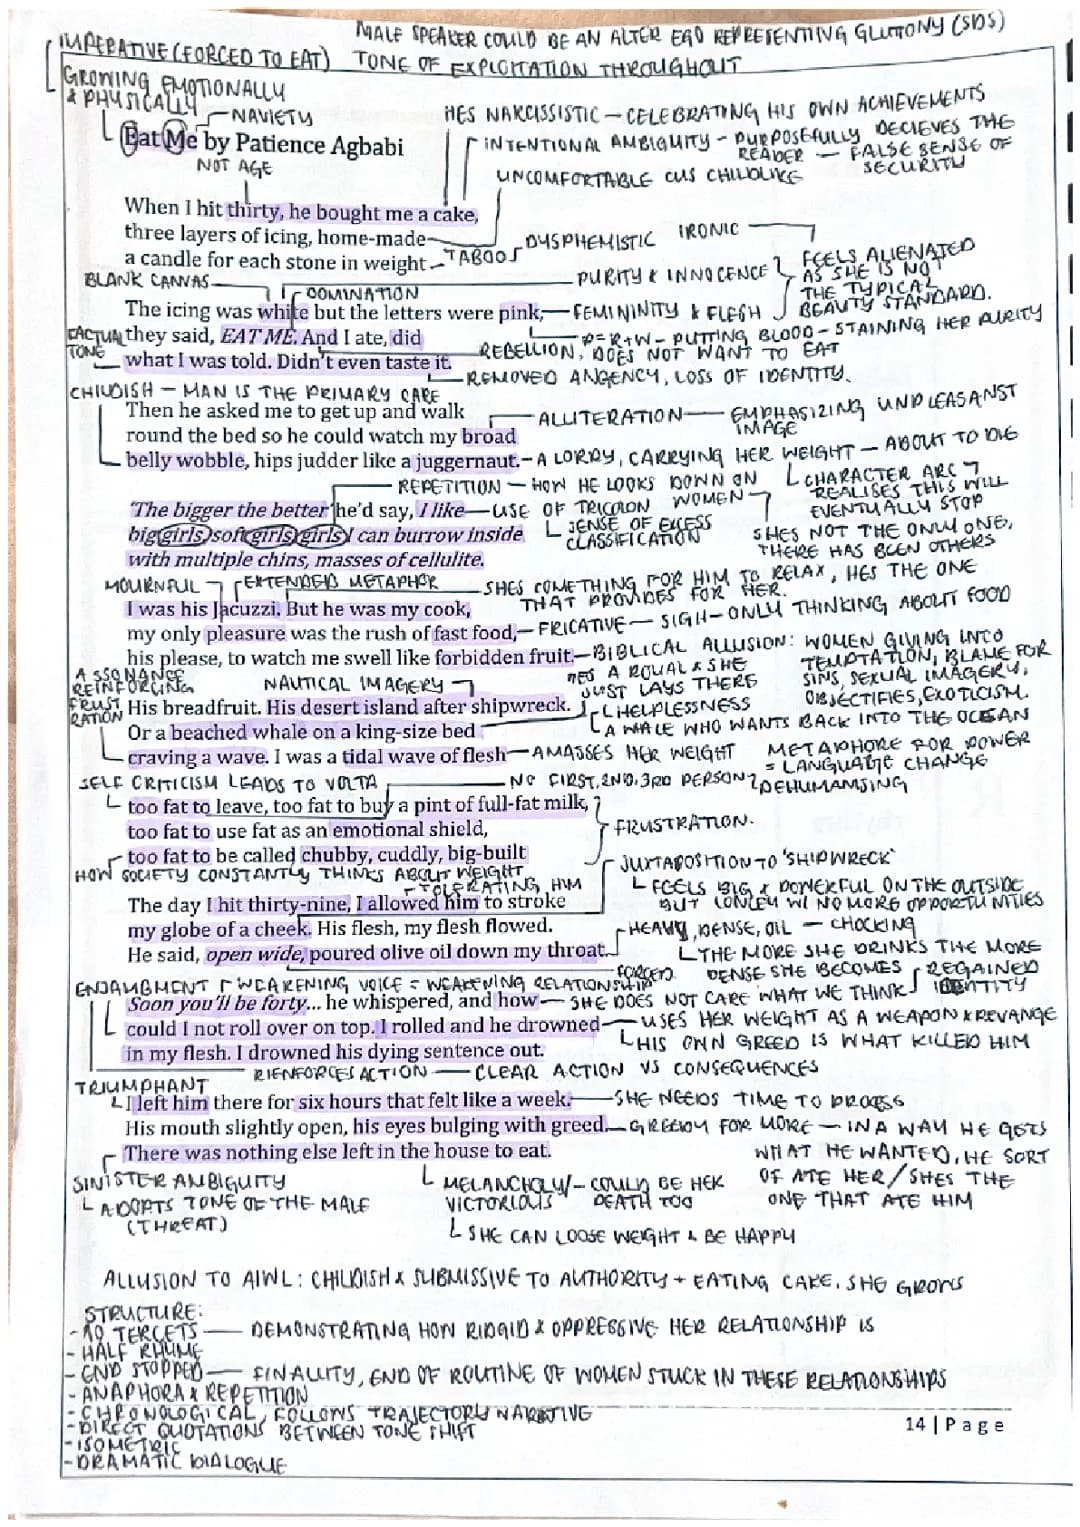 MALE SPEAKER COULD BE AN ALTER EGO REPRESENTING GLUTTONY (SDS)
IMPERATIVE (FORCED TO EAT) TONE OF EXPLOITATION THROUGHOUT
GROWING EMOTIONALLY
& PHYSICALLY
NAVIETY
HES NARCISSISTIC - CELEBRATING HIS OWN ACHIEVEMENTS
Eat Me by Patience Agbabi
INTENTIONAL AMBIGUITY - PURPOSEFULLY DECIEVES THE
READER - FALSE SENSE OF
SECURITY
NOT AGE
UNCOMFORTABLE CUS CHILDLIKE
When I hit thirty, he bought me a cake,
three layers of icing, home-made
a candle for each stone in weight
TABOO
DYSPHEMISTIC IRONIC
FEELS ALIENATED
AS SHE IS NOT
THE TYPICAL
BEAUTY STANDARD.
BLANK CANVAS
DOMINATION
PURITY & INNOCENCE
The icing was white but the letters were pink,
FEMININITY & FLEGH
they said, EAT ME. And I ate, did
P=R+W - PUTTING BLOOD - STAINING HER PURITY
FACTUAL
TONE
what I was told. Didn't even taste it.
REBELLION, DOES NOT WANT TO EAT
REMOVED ANGENCY, LOSS OF IDENTITY.
CHILDISH - MAN IS THE PRIMARY CARE
Then he asked me to get up and walk
ALLITERATION - EMPHASIZING UNPLEASANST
IMAGE
round the bed so he could watch my broad
belly wobble, hips judder like a juggernaut.
A LORRY, CARRYING HER WEIGHT - ABOUT TO DIE
REPETITION - HOW HE LOOKS DOWN ON
WOMEN
CHARACTER ARC
REALISES THIS WILL
EVENTUALLY STOP
The bigger the better he'd say, I like
USE OF TRICOLON
big girls, soft girls, girls I can burrow inside
SENSE OF EXCESS
CLASSIFICATION
SHES NOT THE ONLY ONE,
THERE HAS BEEN OTHERS
with multiple chins, masses of cellulite.
MOURNFUL
EXTENDED METAPHOR
SHES SOMETHING FOR HIM TO RELAX, HES THE ONE
THAT PROVIDES FOR HER.
I was his Jacuzzi. But he was my cook,
my only pleasure was the rush of fast food,
FRICATIVE - SIGH - ONLY THINKING ABOUT FOOD
his please, to watch me swell like forbidden fruit.
BIBLICAL ALLUSION: WOMEN GIVING INTO
TEMPTATION, BLAME FOR
SINS, SEXUAL IMAGERY,
OBJECTIFIES, EXOTICISM.
ASSONANCE
REINFORCING
FRUST
RATION
NAUTICAL IMAGERY
HES A ROYAL & SHE
JUST LAYS THERE
His breadfruit. His desert island after shipwreck.
HELPLESSNESS
Or a beached whale on a king-size bed
A WALE WHO WANTS BACK INTO THE OCEAN
craving a wave. I was a tidal wave of flesh
AMASSES HER WEIGHT
METAPHORE FOR POWER
= LANGUAGE CHANGE
SELF CRITICISM LEADS TO VOLTA
NO FIRST, 2ND, 3RD PERSON
DEHUMANSING
too fat to leave, too fat to buy a pint of full-fat milk,
too fat to use fat as an emotional shield,
FRUSTRATION.
too fat to be called chubby, cuddly, big-built
HOW SOCIETY CONSTANTLY THINKS ABOUT WEIGHT
JUXTAPOSITION TO 'SHIPWRECK'
TOLERATING HIM
FEELS BIG & POWERFUL ON THE OUTSIDE
BUT LONLEY W/ NO MORE OPPORTUNITIES
The day I hit thirty-nine, I allowed him to stroke
my globe of a cheek. His flesh, my flesh flowed.
HEAVY, DENSE, OIL - CHOCKING
He said, open wide, poured olive oil down my throat.
THE MORE SHE DRINKS THE MORE
DENSE SHE BECOMES
FORCED
REGAINED
IDENTITY
ENJAMBMENT
WEAKENING VOICE = WEAKENING RELATIONSHIP
Soon you'll be forty... he whispered, and how
SHE DOES NOT CARE WHAT WE THINK
could I not roll over on top. I rolled and he drowned
USES HER WEIGHT AS A WEAPON & REVANGE
in my flesh. I drowned his dying sentence out.
HIS OWN GREED IS WHAT KILLED HIM
RIENFORCES ACTION - CLEAR ACTION VS CONSEQUENCES
TRIUMPHANT
I left him there for six hours that felt like a week.
SHE NEEDS TIME TO PROCESS
His mouth slightly open, his eyes bulging with greed.
GREEDY FOR MORE - IN A WAY HE GETS
WHAT HE WANTED, HE SORT
OF ATE HER/SHES THE
ONE THAT ATE HIM
There was nothing else left in the house to eat.
SINISTER AMBIGUITY
ADOPTS TONE OF THE MALE
(THREAT)
MELANCHOLY/ - COULD BE HER
VICTORIOUS DEATH TOO
SHE CAN LOOSE WEIGHT & BE HAPPY
ALLUSION TO AIWL: CHILDISH & SUBMISSIVE TO AUTHORITY + EATING CAKE, SHE GROWS
STRUCTURE:
- 10 TERCETS - DEMONSTRATING HOW RIDGID & OPPRESSIVE HER RELATIONSHIP IS
- HALF RHYME
- END STOPPED - FINALITY, END OF ROUTINE OF WOMEN STUCK IN THESE RELATIONSHIPS
- ANAPHORA & REPETITION
- CHRONOLOGICAL, FOLLOWS TRAJECTORY NARRTIVE
- DIRECT QUOTATIONS BETWEEN TONE SHIFT
- ISOMETRIC
- DRAMATIC DIALOGUE
14 | Page